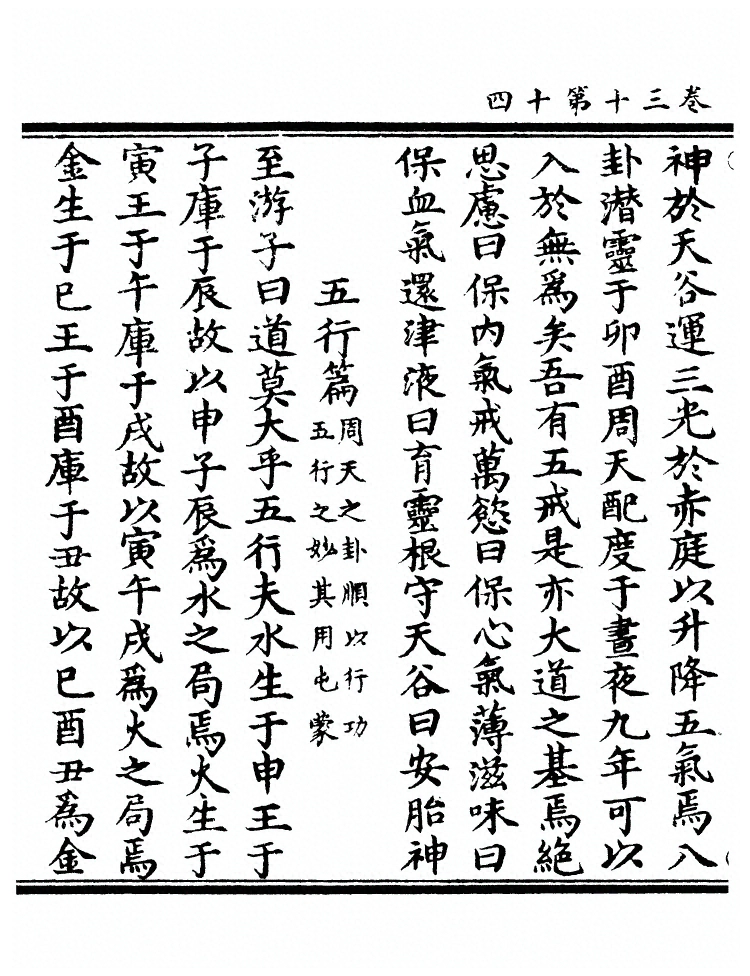 卷三十第十四
神於天谷運三光於赤庭以升降五氣焉八
卦潛靈于卯酉周天配度于晝夜九年可以
入於無爲矣吾有五戒是亦大道之基焉絕
思慮曰保內氣戒萬慾曰保心氣薄滋味曰
保血氣還津液曰育靈根守天谷曰安胎神
五行篇
周天之卦順以行功
五行之妙其用屯蒙
至游子曰道莫大乎五行夫水生于申王于
子庫于辰故以申子辰爲水之局焉火生于
寅王于午庫于戌故以寅午戌爲火之局焉
金生于巳王于酉庫于丑故以巳酉丑爲金